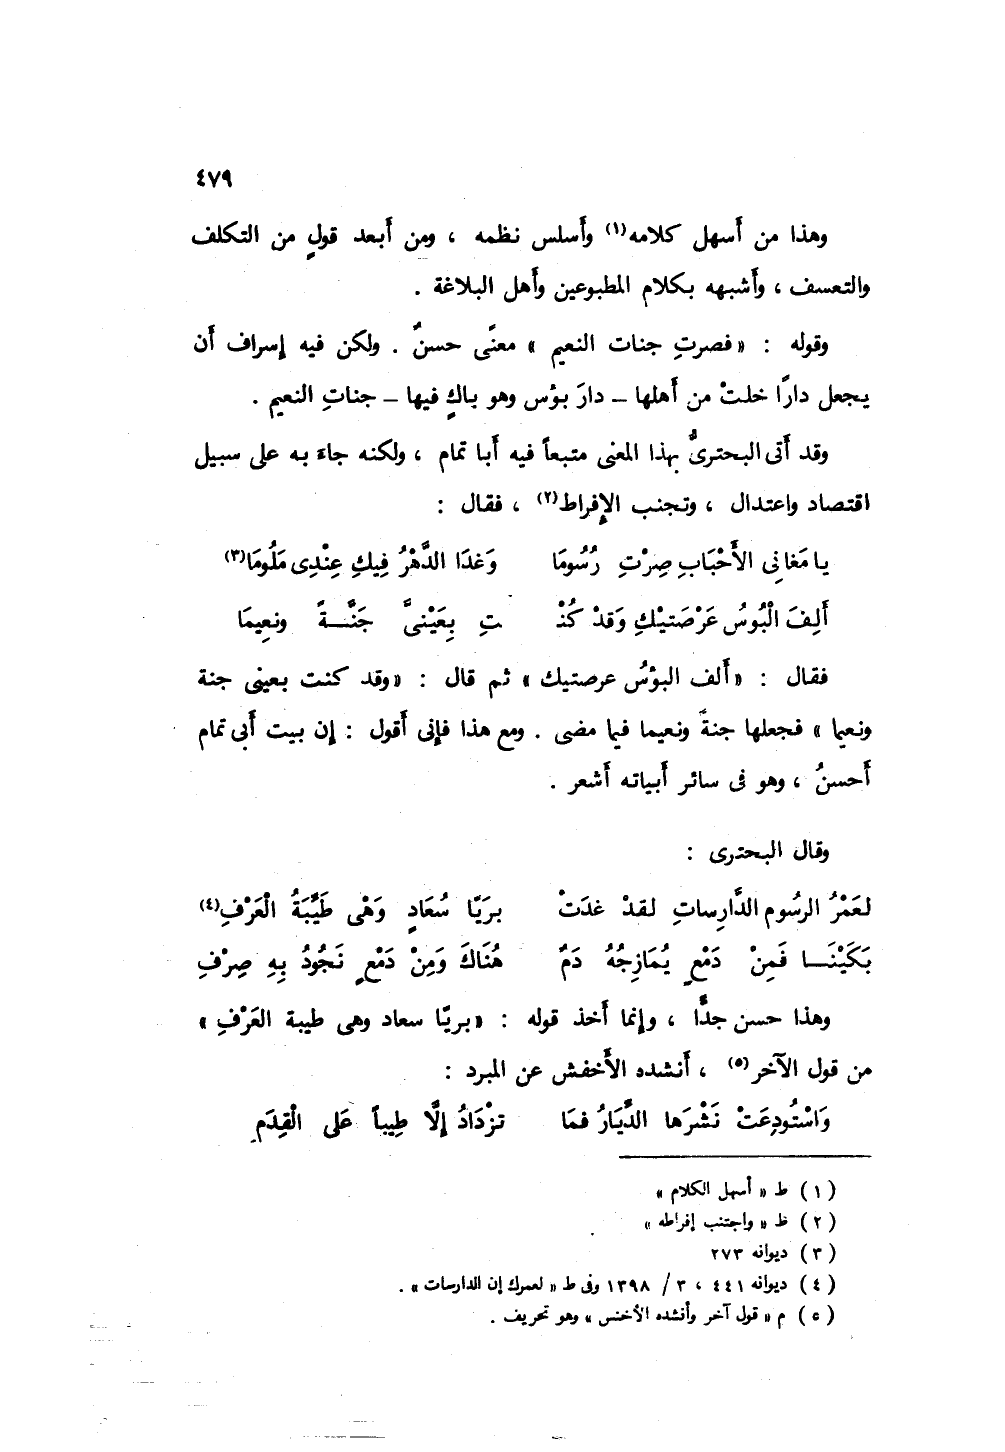 ٤٧٩
وهذا من أَسهل كلامه(١) وأَسلس نظمه ، ومن أَبعد قولٍ من التكلف
والتعسف ، وأَشبهه بكلام المطبوعين وأَهل البلاغة .
وقوله : « فصرتِ جنات النعيم » معنًى حسنٌ . ولكن فيه إسراف أَن
يجعل دارًا خلتْ من أَهلها – دارَ بؤس وهو باكٍ فيها – جناتِ النعيم .
وقد أَتى البحترىُّ بهذا المعنى متبعاً فيه أَبا تمام ، ولكنه جاءَ به على سبيل
اقتصاد واعتدال ، وتجنب الإِفراط(٢) ، فقال :
يا مَغانِى الأَحْبَابِ صِرْتِ رُسُومَا وَغدَا الدَّهْرُ فِيكِ عِنْدِى مَلُومَا(٣)
أَلِفَ الْبُوسُ عَرْصَتيْكِ وَقدْ كُنْـ ـتِ بِعَيْنىَّ جَنَّــةً ونعِيمَا
فقال : « أَلف البؤسُ عرصتيك » ثم قال : « وقد كنت بعينى جنة
ونعيما » فجعلها جنةً ونعيما فيما مضى . ومع هذا فإنى أَقول : إن بيت أَبى تمام
أَحسنُ ، وهو فى سائر أَبياته أَشعر .
وقال البحترى :
لعَمْرُ الرسُوم الدَّارِساتِ لقدْ غدَتْ برَيَّا سُعَادٍ وَهْى طَيِّبَةُ الْعَرْفِ(٤)
بَكَيْنَــا فَمِنْ دَمْعٍ يُمَازِجُهُ دَمٌ هُنَاكَ وَمِنْ دَمْعٍ نَجُودُ بِهِ صِرْفِ
وهذا حسن جدًّا ، وإنما أَخذ قوله : « بريَّا سعاد وهى طيبة العَرْفِ »
من قول الآخر(٥) ، أَنشده الأَخفش عن المبرد :
وَاسْتُودِعَتْ نَشْرَها الدِّيَارُ فمَا تزْدَادُ إلَّا طِيباً عَلى الْقِدَمِ
(١) ط « أسهل الكلام »
(٢) ظ « واجتنب إفراطه »
(٣) ديوانه ٢٧٣
(٤) ديوانه ٤٤١ ، ٣ / ١٣٩٨ وفى ط « لعمرك إن الدارسات » .
(٥) م « قول آخر وأنشده الأخنس » وهو تحريف .